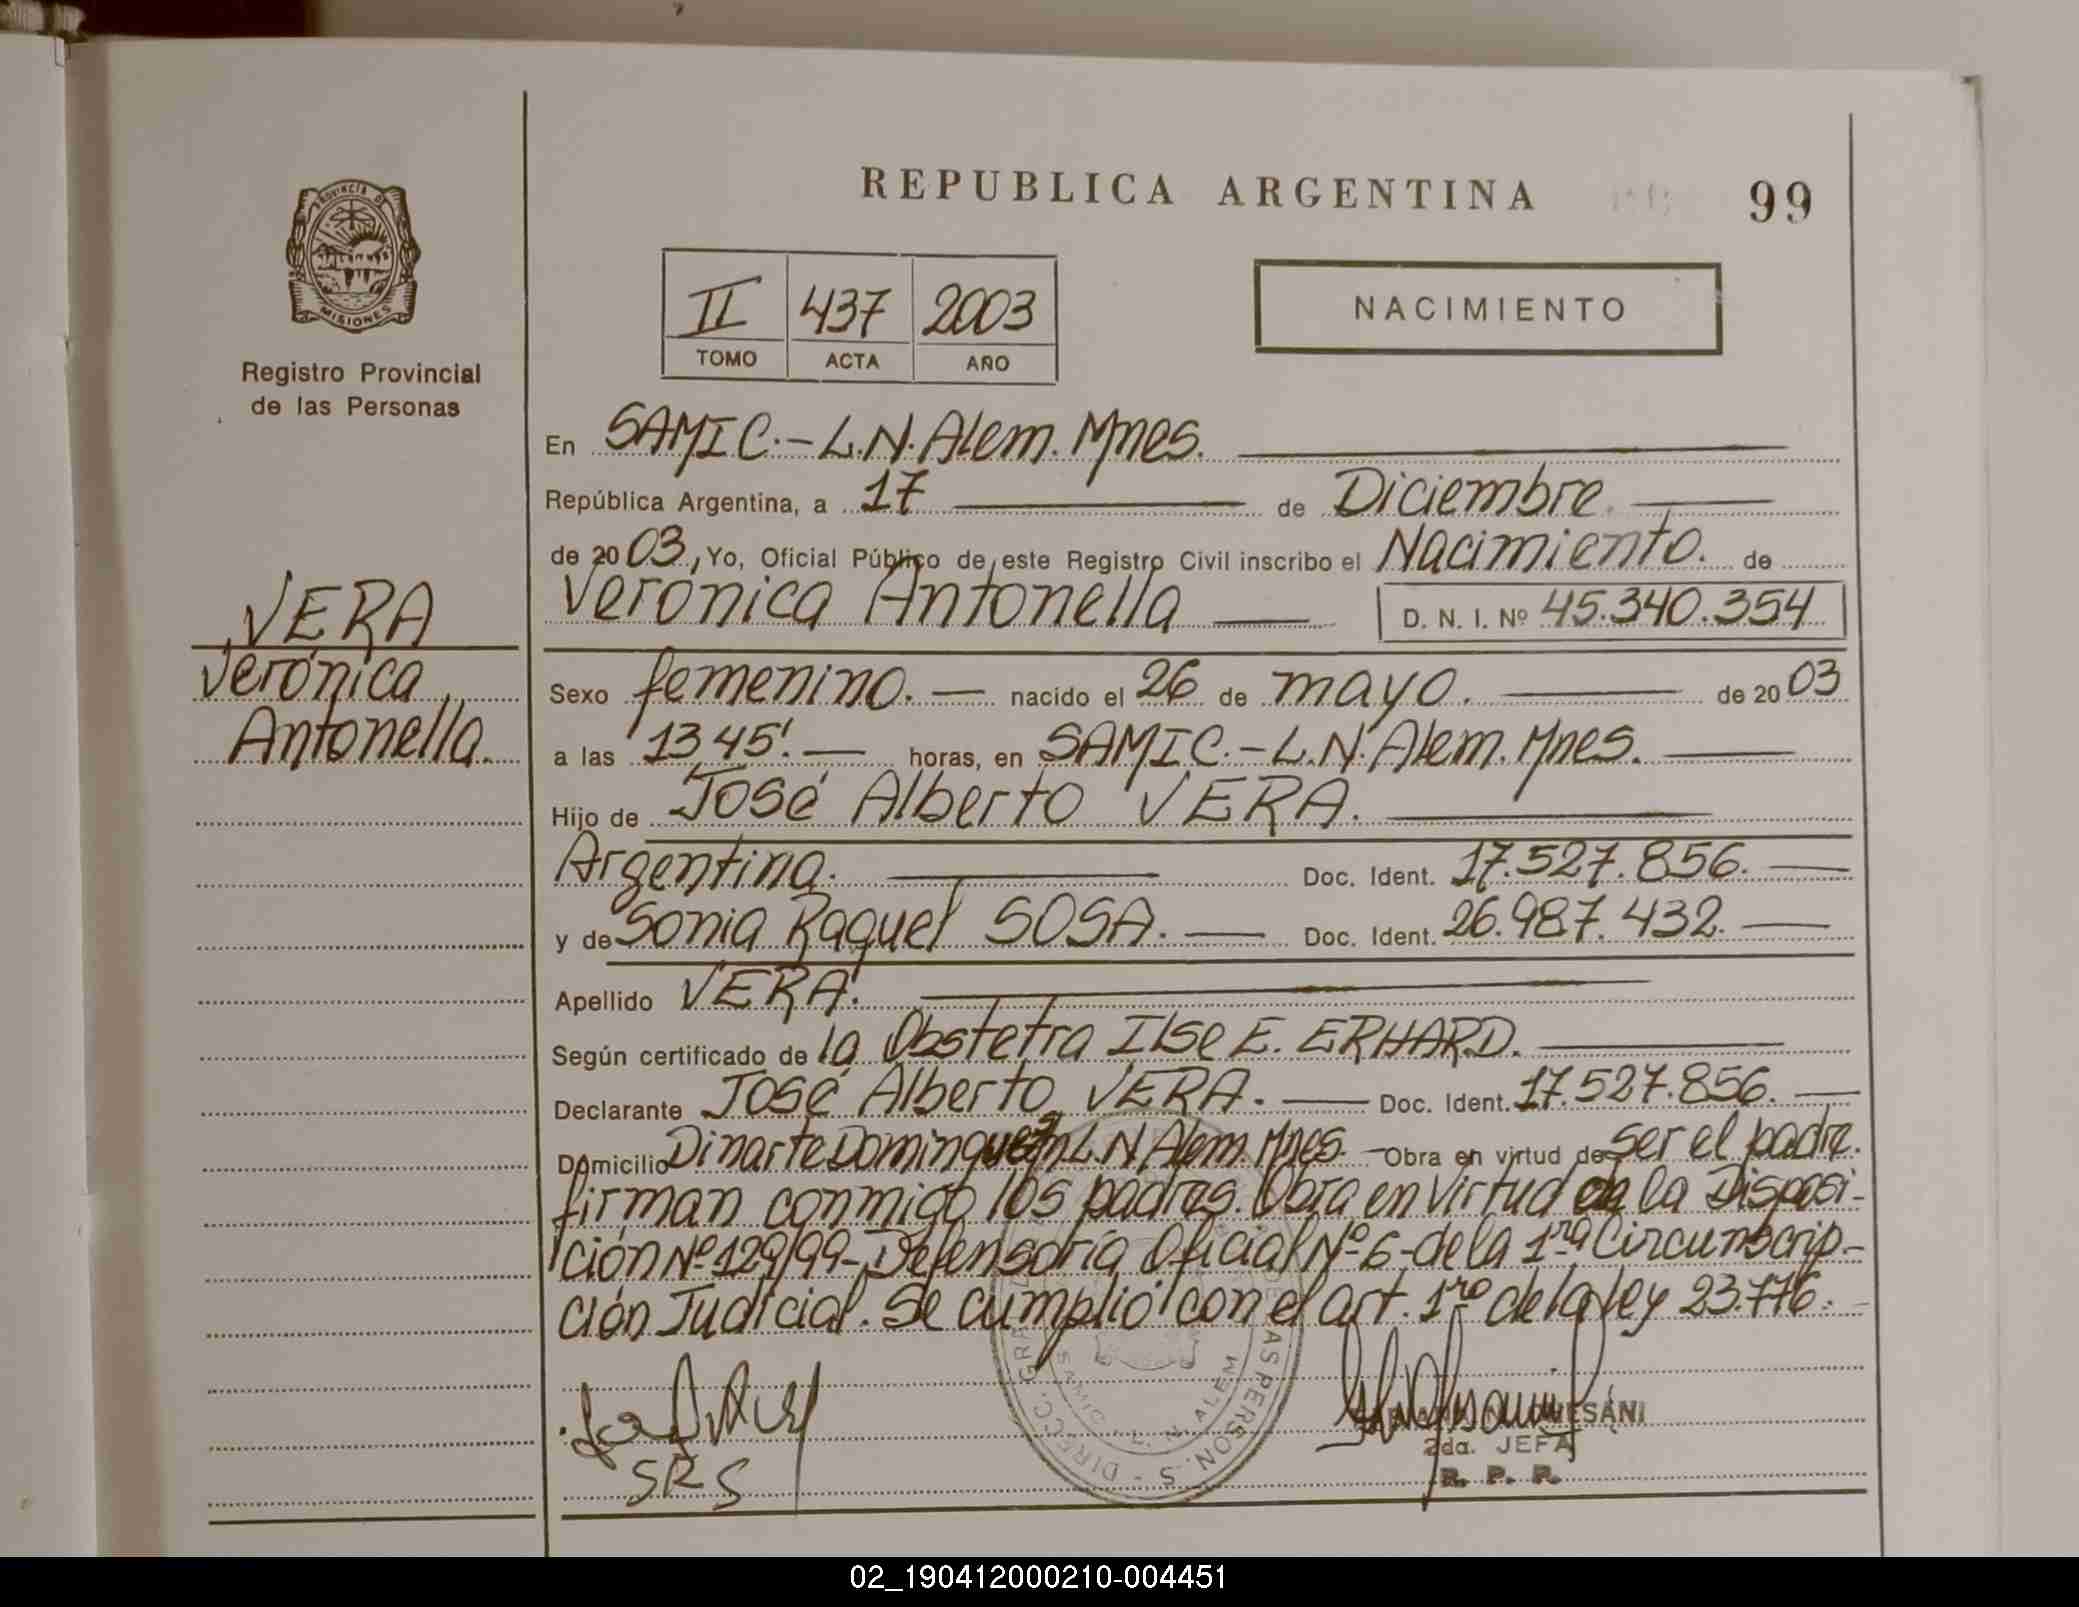 REPUBLICA ARGENTINA
99
PROVINCIA DE
MISIONES
Registro Provincial
de las Personas
II 437 2003
TOMO ACTA AÑO
NACIMIENTO
En SAMIC.-L.N.Alem.Mnes.
República Argentina, a 17 de Diciembre.
de 2003, Yo, Oficial Público de este Registro Civil inscribo el Nacimiento. de
Verónica Antonella D. N. I. Nº 45.340.354
VERA
Verónica
Antonella.
Sexo femenino. nacido el 26 de mayo. de 2003
a las 13 45'. horas, en SAMIC.-L.N.Alem.Mnes.
Hijo de José Alberto VERA.
Argentina. Doc. Ident. 17.527.856.
y de Sonia Raquel SOSA. Doc. Ident. 26.987.432.
Apellido VERA.
Según certificado de la Obstetra Ilse E. ERHARD.
Declarante José Alberto VERA. Doc. Ident. 17.527.856.
Domicilio Dinarte Dominguez L.N.Alem.Mnes. Obra en virtud de ser el padre.
firman conmigo los padres. Obra en virtud de la Disposi-
ción Nº 129/99-Defensoría Oficial Nº 6-de la 1ra Circunscrip-
ción Judicial. Se cumplió con el art. 1ro de la ley 23.776.
SRS
DIRECC. GRAL. DE LAS PERSON. S
SAMIC - L. N. ALEM
2da. JEFA
R. P. P.
02_190412000210-004451